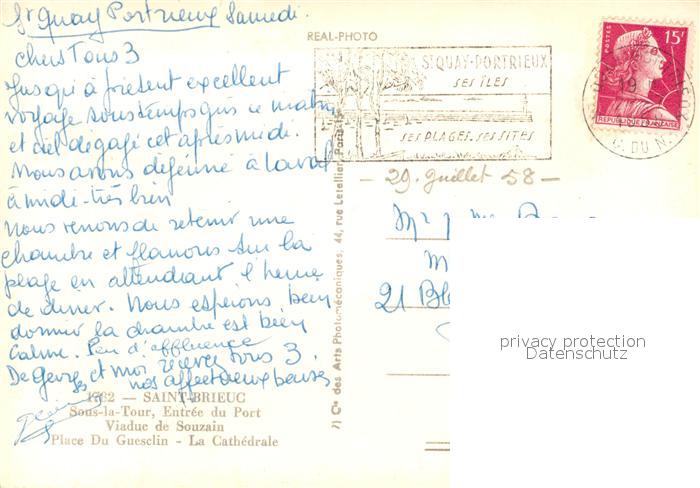 St Quay Portrieux Samedi.
chers Tous 3
Jusqu'à présent excellent
voyage sous temps gris ce matin
et ciel dégagé cet après midi.
Nous avons déjeuné à Laval
à midi - très bien
Nous venons de retenir une
chambre et flanons sur la
plage en attendant l'heure
de diner. Nous espérons bien
dormir la chambre est bien
calme. Peu d'affluence
De George et moi recevez tous 3.
nos affectueux baisers
REAL-PHOTO
ST QUAY-PORTRIEUX
SES ÎLES
SES PLAGES. SES SITES
POSTES
15F
REPUBLIQUE FRANÇAISE
19
DU N
- 29. Juillet 58 -
Mr
M
21
privacy protection
Datenschutz
Cie des Arts Photomécaniques, 44, rue Letellier, Paris
— SAINT-BRIEUC
Sous-la-Tour, Entrée du Port
Viaduc de Souzain
Place Du Guesclin - La Cathédrale